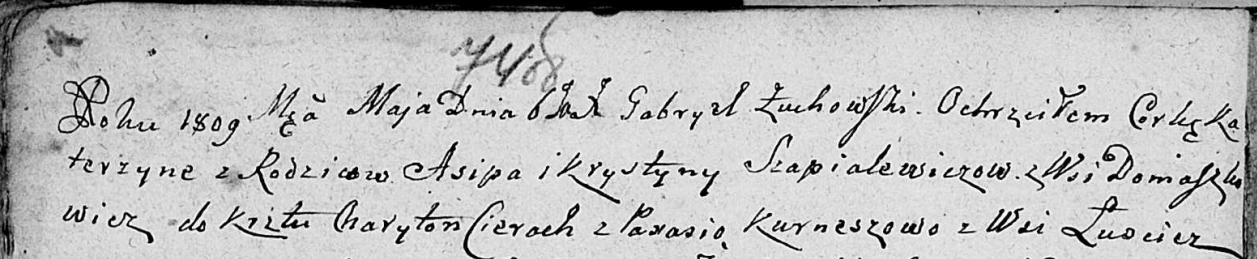 7408
Roku 1809 Mca Maja Dnia 6 Ja X Gabryel Żuchowski. Ochrzciłem Corkę Ka
terzyne z Rodzicow Asipa i Krystyny Szapialewiczow. z Wsi Domaszko
wicz do Krztu Charyton Cierach z Parasią Kurneszowo z Wsi